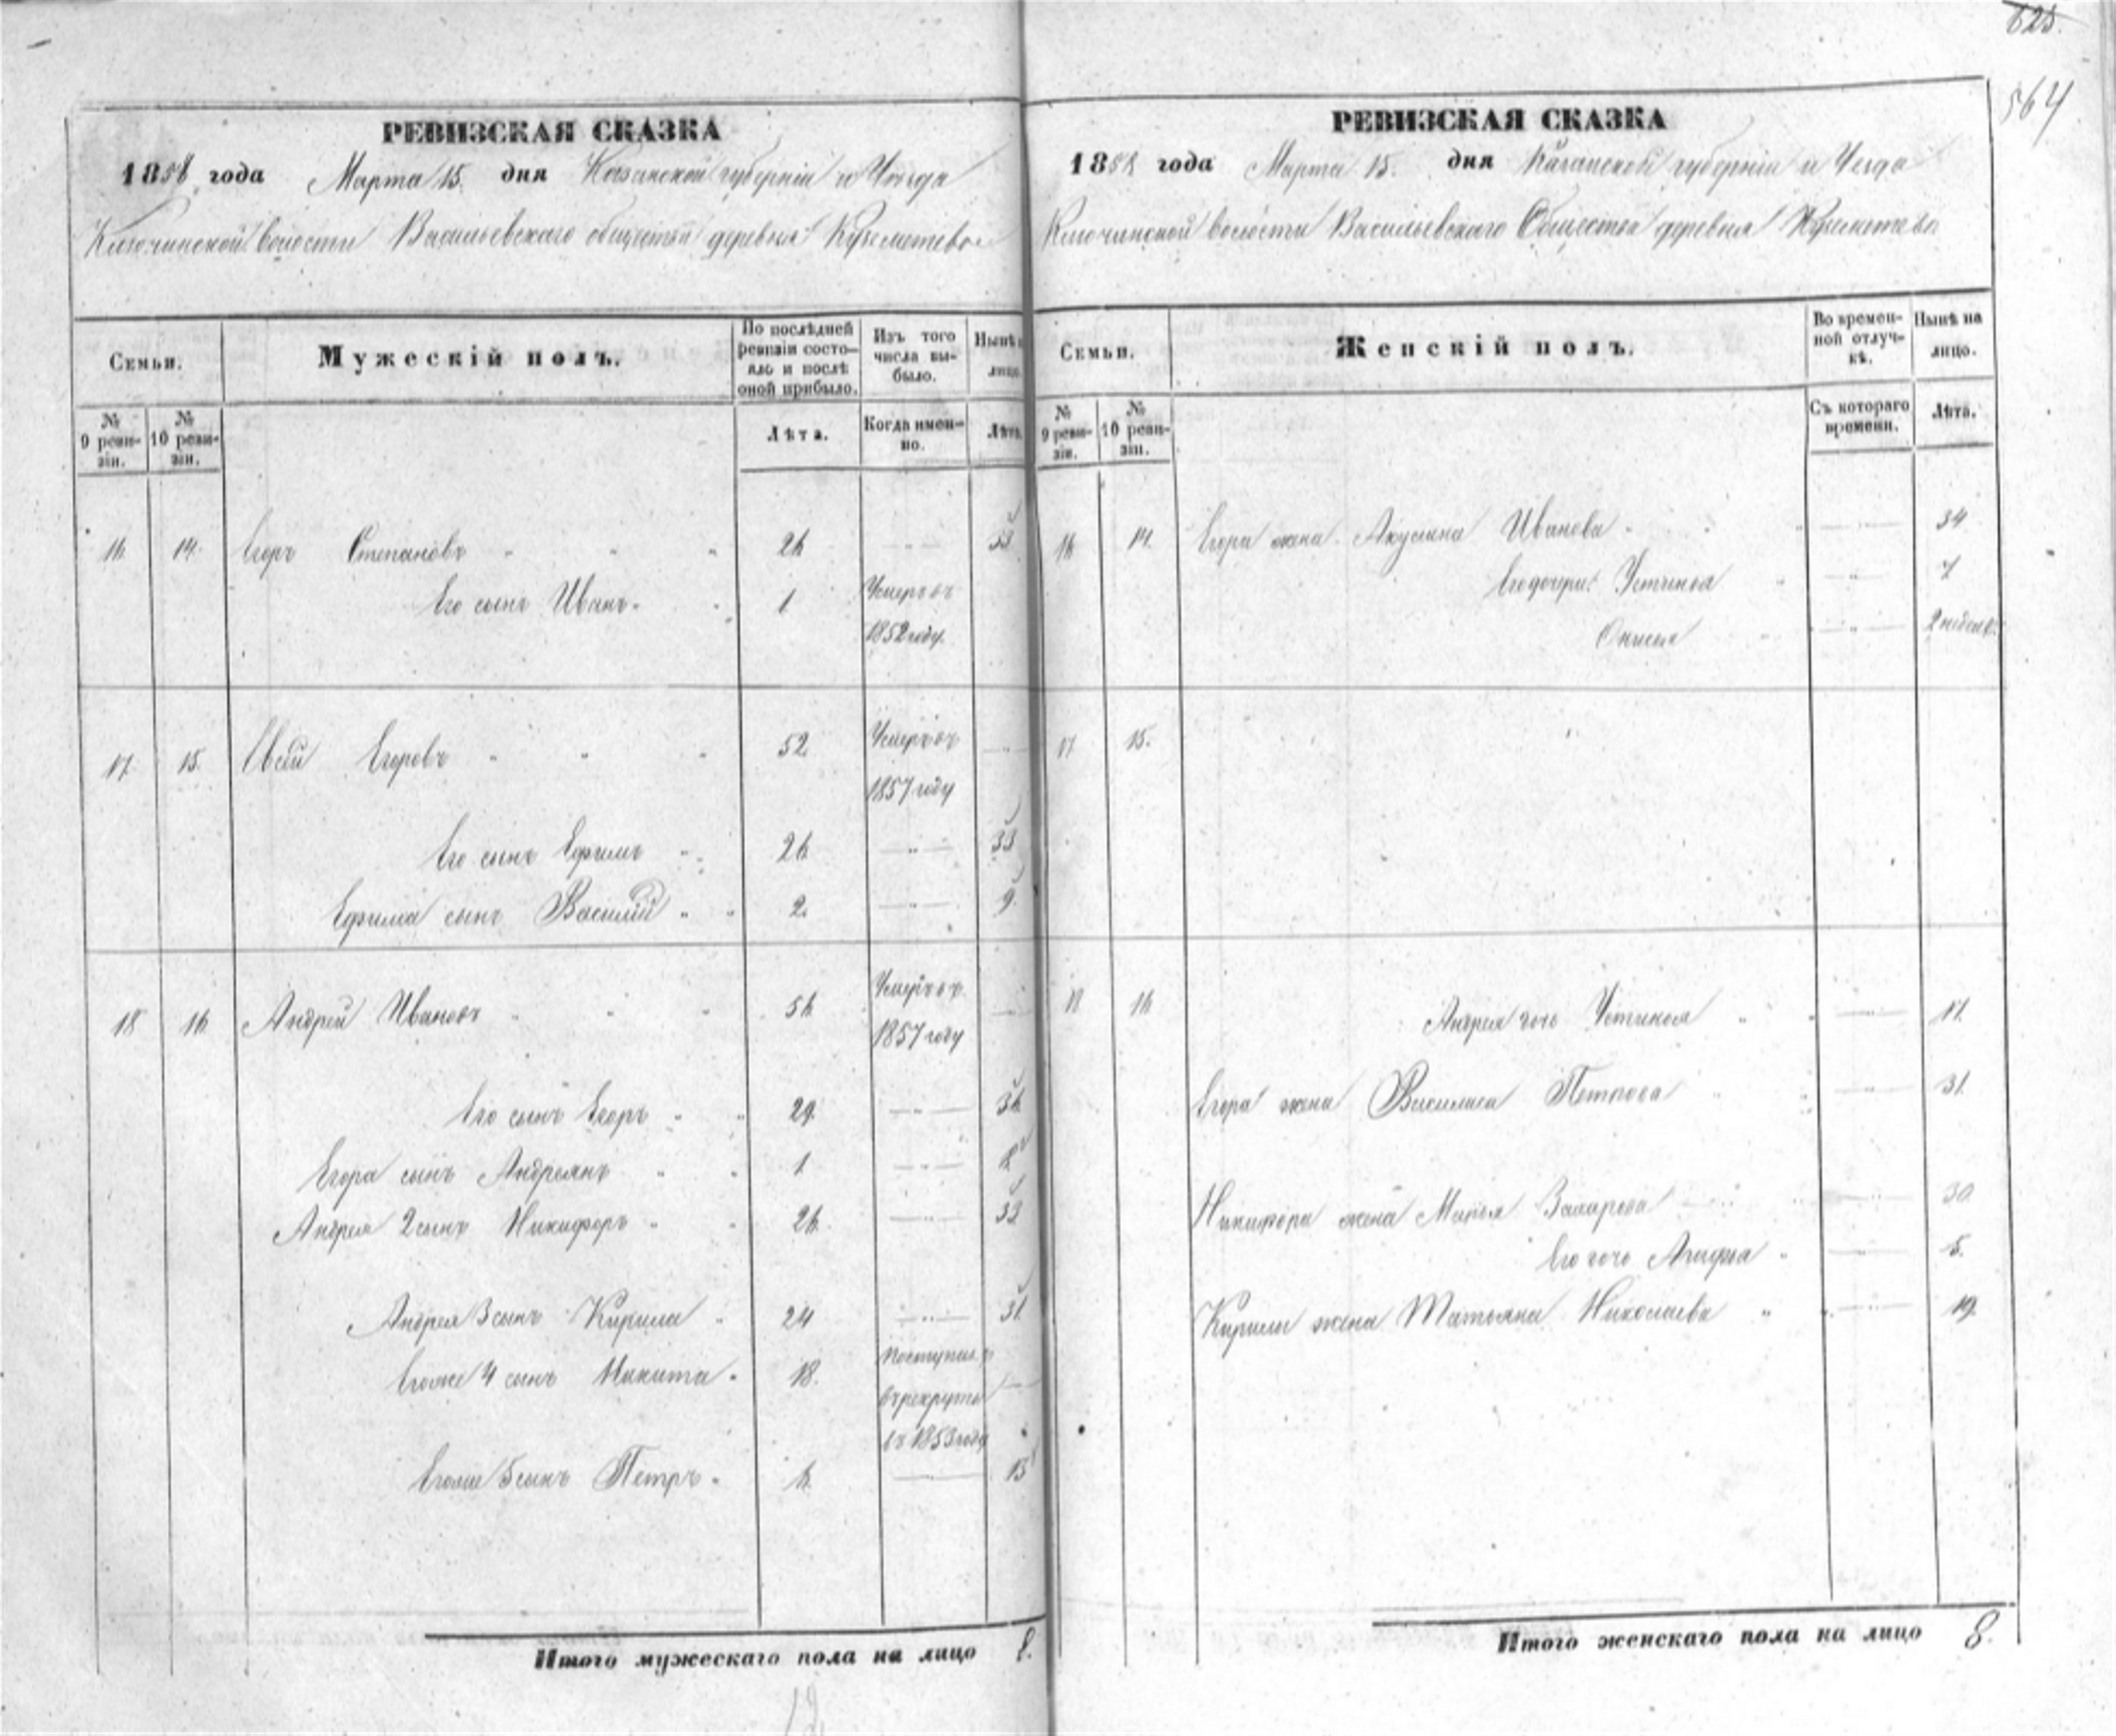 625.
564
РЕВИЗСКАЯ СКАЗКА
1858 года Марта 15. дня Казанской губерніи и Уѣзда
Ключинской волости Васильевскаго общества деревня
Семьи.
Мужескій полъ.
По послѣдней ревизіи состо-
яло и послѣ
оной прибыло.
Изъ того
числа вы-
было.
Нынѣ
лицо.
№
9 реви-
зіи.
№
10 реви-
зіи.
Лѣта.
Когда имен-
но.
Лѣта.
16 14. Егоръ Степановъ 26 33
Его сынъ Иванъ 1 Умеръ въ
1852 году.
17. 15. Егоровъ 52 Умеръ въ
1857 году
Его сынъ Ефимъ 26 33
Ефима сынъ Василій 2. 9
18 16 Андрей Ивановъ 56 Умеръ въ
1857 году
Его сынъ Егоръ 29. 36
Егора сынъ Андреянъ 1 8
Андрея 2 сынъ Никифоръ 26. 33
Андрея 3 сынъ Кирила 24 31
Егоже 4 сынъ Никита 18. Поступилъ
въ рекруты
въ 1853 году
Егоже 5 сынъ Петръ 6. 13
Итого мужескаго пола на лицо 8.
РЕВИЗСКАЯ СКАЗКА
1858 года Марта 15. дня Казанской губерніи и Уезда
Ключинской волости Васильевскаго Общества деревня
Семьи.
Женскій полъ.
Во времен-
ной отлуч-
кѣ.
Нынѣ на
лицо.
№
9 реви-
зіи.
№
10 реви-
зіи.
Съ котораго
времени.
Лѣта.
16 14. Егора жена Акулина Иванова 34
Его дочери: Устинья 7
Онисья 2 недель.
17 15.
18 16 Андрея дочь Устинья 17.
Егора жена Василиса Петрова 31.
Никифора жена Марья Захарова 30.
Его дочь Агафья 5.
Кирилы жена Татьяна Николаева 19.
Итого женскаго пола на лицо 8.
12